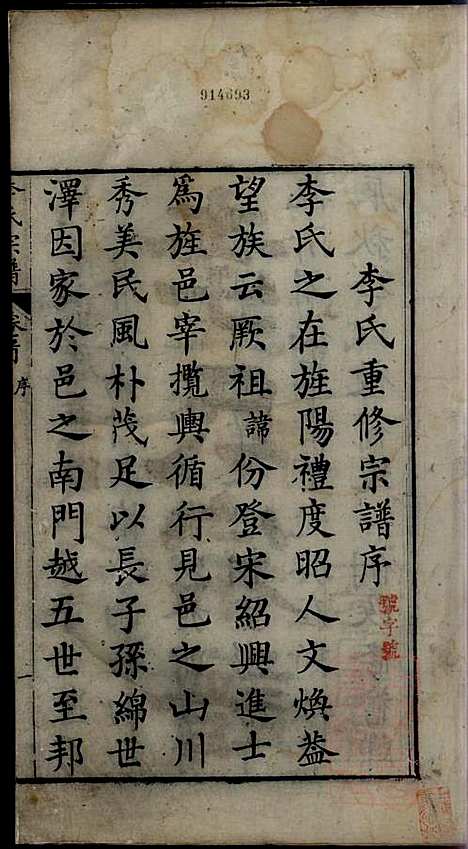 914693
李氏重修宗譜序
李氏之在旌陽禮度昭人文煥蓋
望族云厥祖諱份登宋紹興進士
為旌邑宰攬輿循行見邑之山川
秀美民風朴茂足以長子孫綿世
澤因家於邑之南門越五世至邦
李氏宗譜
序
一
號字號